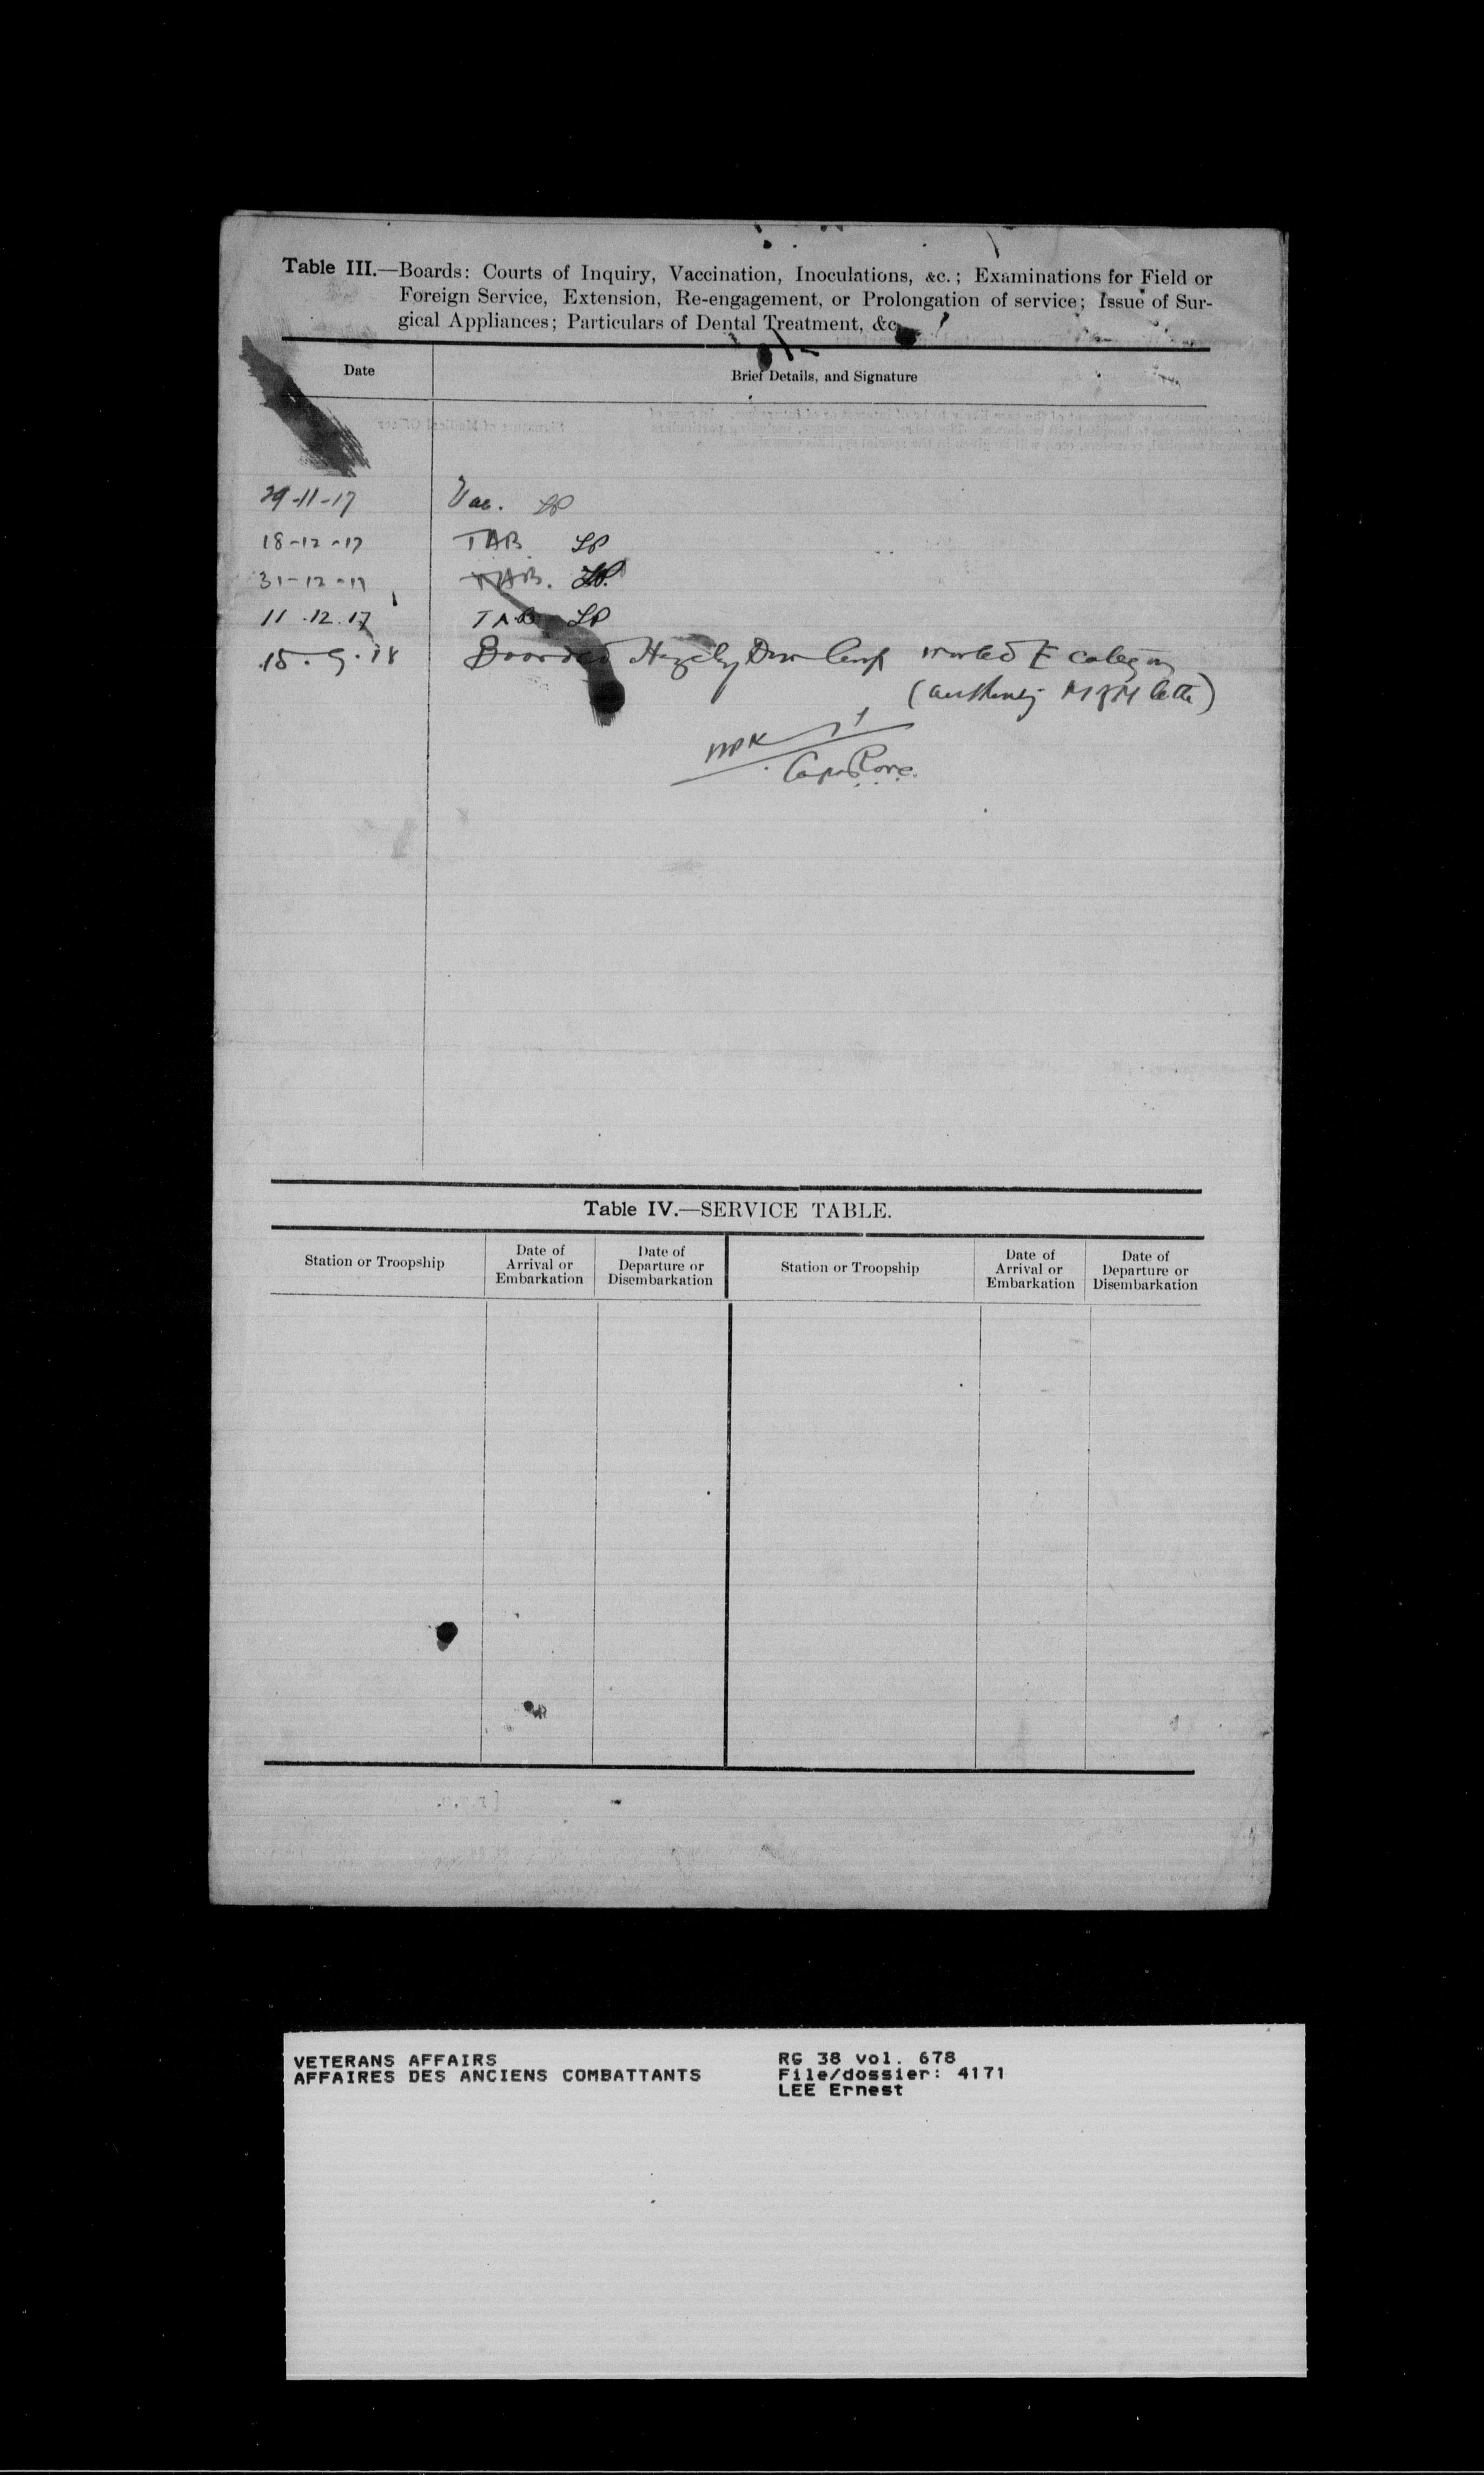 Table III.—Boards: Courts of Inquiry, Vaccination, Inoculations, &c.; Examinations for Field or
Foreign Service, Extension, Re-engagement, or Prolongation of service; Issue of Sur-
gical Appliances; Particulars of Dental Treatment, &c.
Date
Brief Details, and Signature
29-11-17 Vac. LP
18-12-17 TAB LP
31-12-17 TAB. LP.
11.12.17 TAB LP
15.9.18 Boarded Hazeley Down Camp marked E category
(authority letter)
Capt
Table IV.—SERVICE TABLE.
Station or Troopship
Date of
Arrival or
Embarkation
Date of
Departure or
Disembarkation
Station or Troopship
Date of
Arrival or
Embarkation
Date of
Departure or
Disembarkation
VETERANS AFFAIRS
AFFAIRES DES ANCIENS COMBATTANTS
RG 38 vol. 678
File/dossier: 4171
LEE Ernest